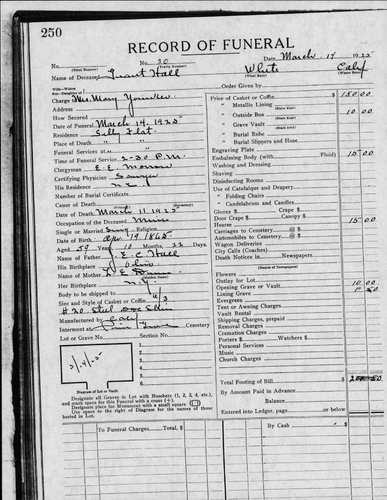 250
RECORD OF FUNERAL
No.
(Total Number)
No. 20
(Yearly Number)
Date March 14 1925
Name of Deceased Grant Hall
White
(What Race)
Calif
(Where Born)
Wife—Widow
Son—Daughter of
Order Given by
Charge Mrs. Mary
Address
How Secured
Date of Funeral March 14, 1925
Residence Flat
Place of Death "
Funeral Services at "
Time of Funeral Service 2-30 P.M.
Clergyman E. E.
Certifying Physician Sawyer
His Residence
Number of Burial Certificate
Cause of Death
(Primary)
(Secondary)
Date of Death March 11, 1925
Occupation of the Deceased Miner
Single or Married Sing Religion
Date of Birth Apr 19 1865
Aged 59 Years 10 Months 22 Days
Name of Father J. E. C. Hall
His Birthplace Ohio
Name of Mother L. E.
(Maiden Name)
Her Birthplace N.Y.
Body to be shipped to
Size and Style of Casket or Coffin 6/3
# 20.
Manufactured by
Interment at Pine Grove Cemetery
Lot or Grave No. Section No.
1.
2.
3.
4.
5.
6.
Diagram of Lot or Vault
Designate all Graves in Lot with Numbers (1, 2, 3, 4, etc.),
and mark space for this Funeral with a cross (+).
Designate place for Monument with a small square
Use space to the right of Diagram for the names of those
buried in Lot.
Price of Casket or Coffin $ 150.00
" Metallic Lining
(State Kind)
" Outside Box 10 00
(State Kind)
" Grave Vault
(State Kind)
" Burial Robe
(State Kind)
" Burial Slippers and Hose
Engraving Plate
Embalming Body (with Fluid) 15 00
Washing and Dressing
Shaving
Disinfecting Rooms
Use of Catafalque and Drapery
" Folding Chairs
" Candelabrum and Candles
Gloves $ Crape $
Door Crape $ Canopy $
Hearse 15 00
Carriages to Cemetery @ $
Automobiles to Cemetery @ $
Wagon Deliveries
City Calls (Coaches)
Death Notices in Newspapers
(Names of Newspapers)
Flowers
Outlay for Lot
Opening Grave or Vault 10 00
Lining Grave 7 50
Evergreen
Tent or Awning Charges
Vault Rental
Shipping Charges, prepaid
Removal Charges
Cremation Charges
Porters $ Watchers $
Personal Services
Music
Church Charges
Total Footing of Bill $
By Amount Paid in Advance
Balance
Entered into Ledger, page or below
To Funeral Charges Total, $
By Cash $